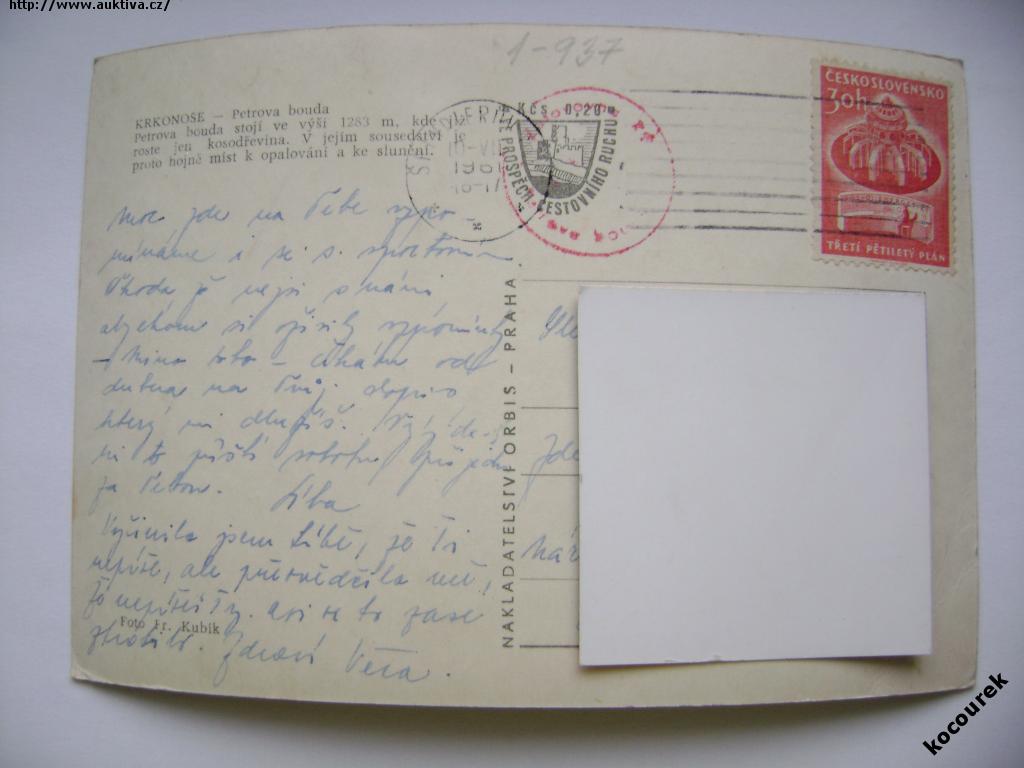 http://www.auktiva.cz/
1-937
KRKONOSE - Petrova bouda
Petrova bouda stojí ve výši 1283 m, kde již
roste jen kosodřevina. V jejím sousedství je
proto hojně míst k opalování a ke slunění.
KČS 0,20
VE PROSPĚCH CESTOVNÍHO RUCHU
ČESKOSLOVENSKO
30h
TŘETÍ PĚTILETÝ PLÁN
Moc jsme na Tebe vzpo-
mínáme i se s.
Škoda že nejsi s námi,
abychom si oživily vzpomínky
- Mimo toho - čekám od
dubna na Tvůj dopis
který mi dlužíš.
to příští sobotu
za Tebou.
Líba
Vyčinila jsem Líbě, že Ti
nepíše, ale přesvědčila mě,
že nepíšeš Ty. asi se to zase
ztratilo. Zdraví Věra.
Foto Fr. Kubík
NAKLADATELSTVÍ ORBIS - PRAHA
kocourek